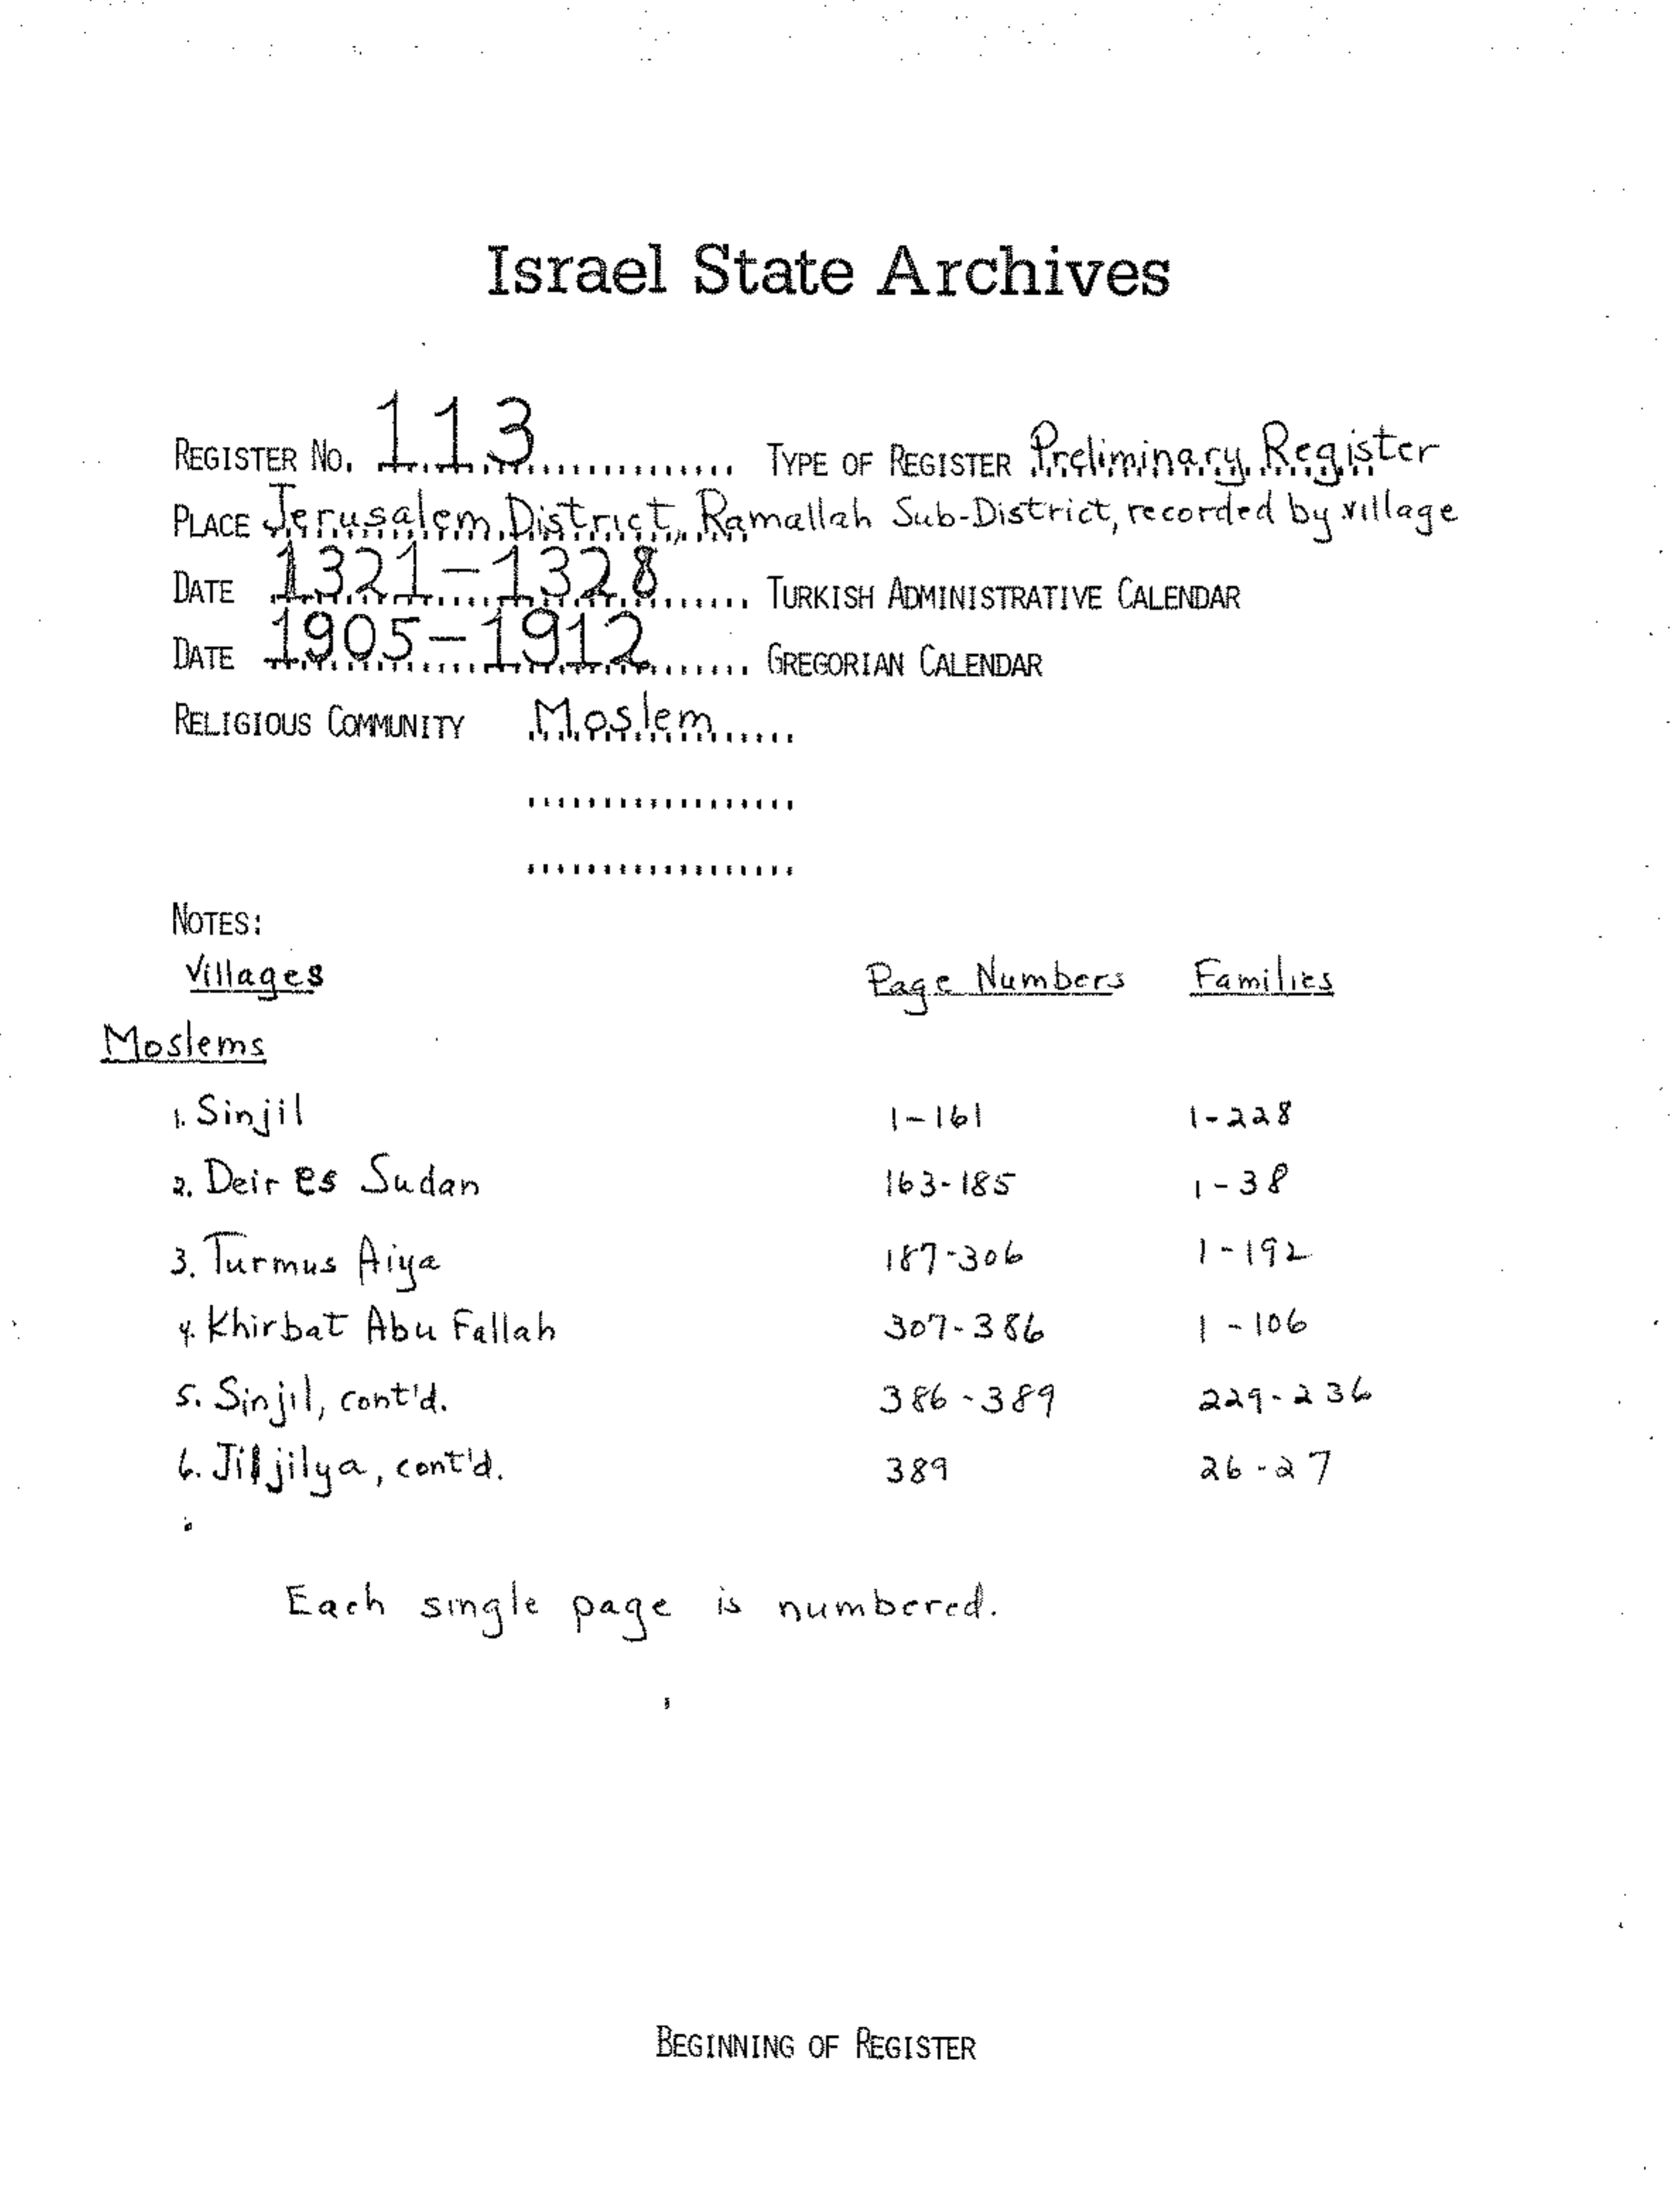 Israel State Archives
REGISTER NO. 113 TYPE OF REGISTER Preliminary Register
PLACE Jerusalem District, Ramallah Sub-District, recorded by village
DATE 1321-1328 TURKISH ADMINISTRATIVE CALENDAR
DATE 1905-1912 GREGORIAN CALENDAR
RELIGIOUS COMMUNITY Moslem
NOTES:
Villages Page Numbers Families
Moslems
1. Sinjil 1-161 1-228
2. Deir es Sudan 163-185 1-38
3. Turmus Aiya 187-306 1-192
4. Khirbat Abu Fallah 307-386 1-106
5. Sinjil, cont'd. 386-389 229-236
6. Jiljilya, cont'd. 389 26-27
Each single page is numbered.
BEGINNING OF REGISTER